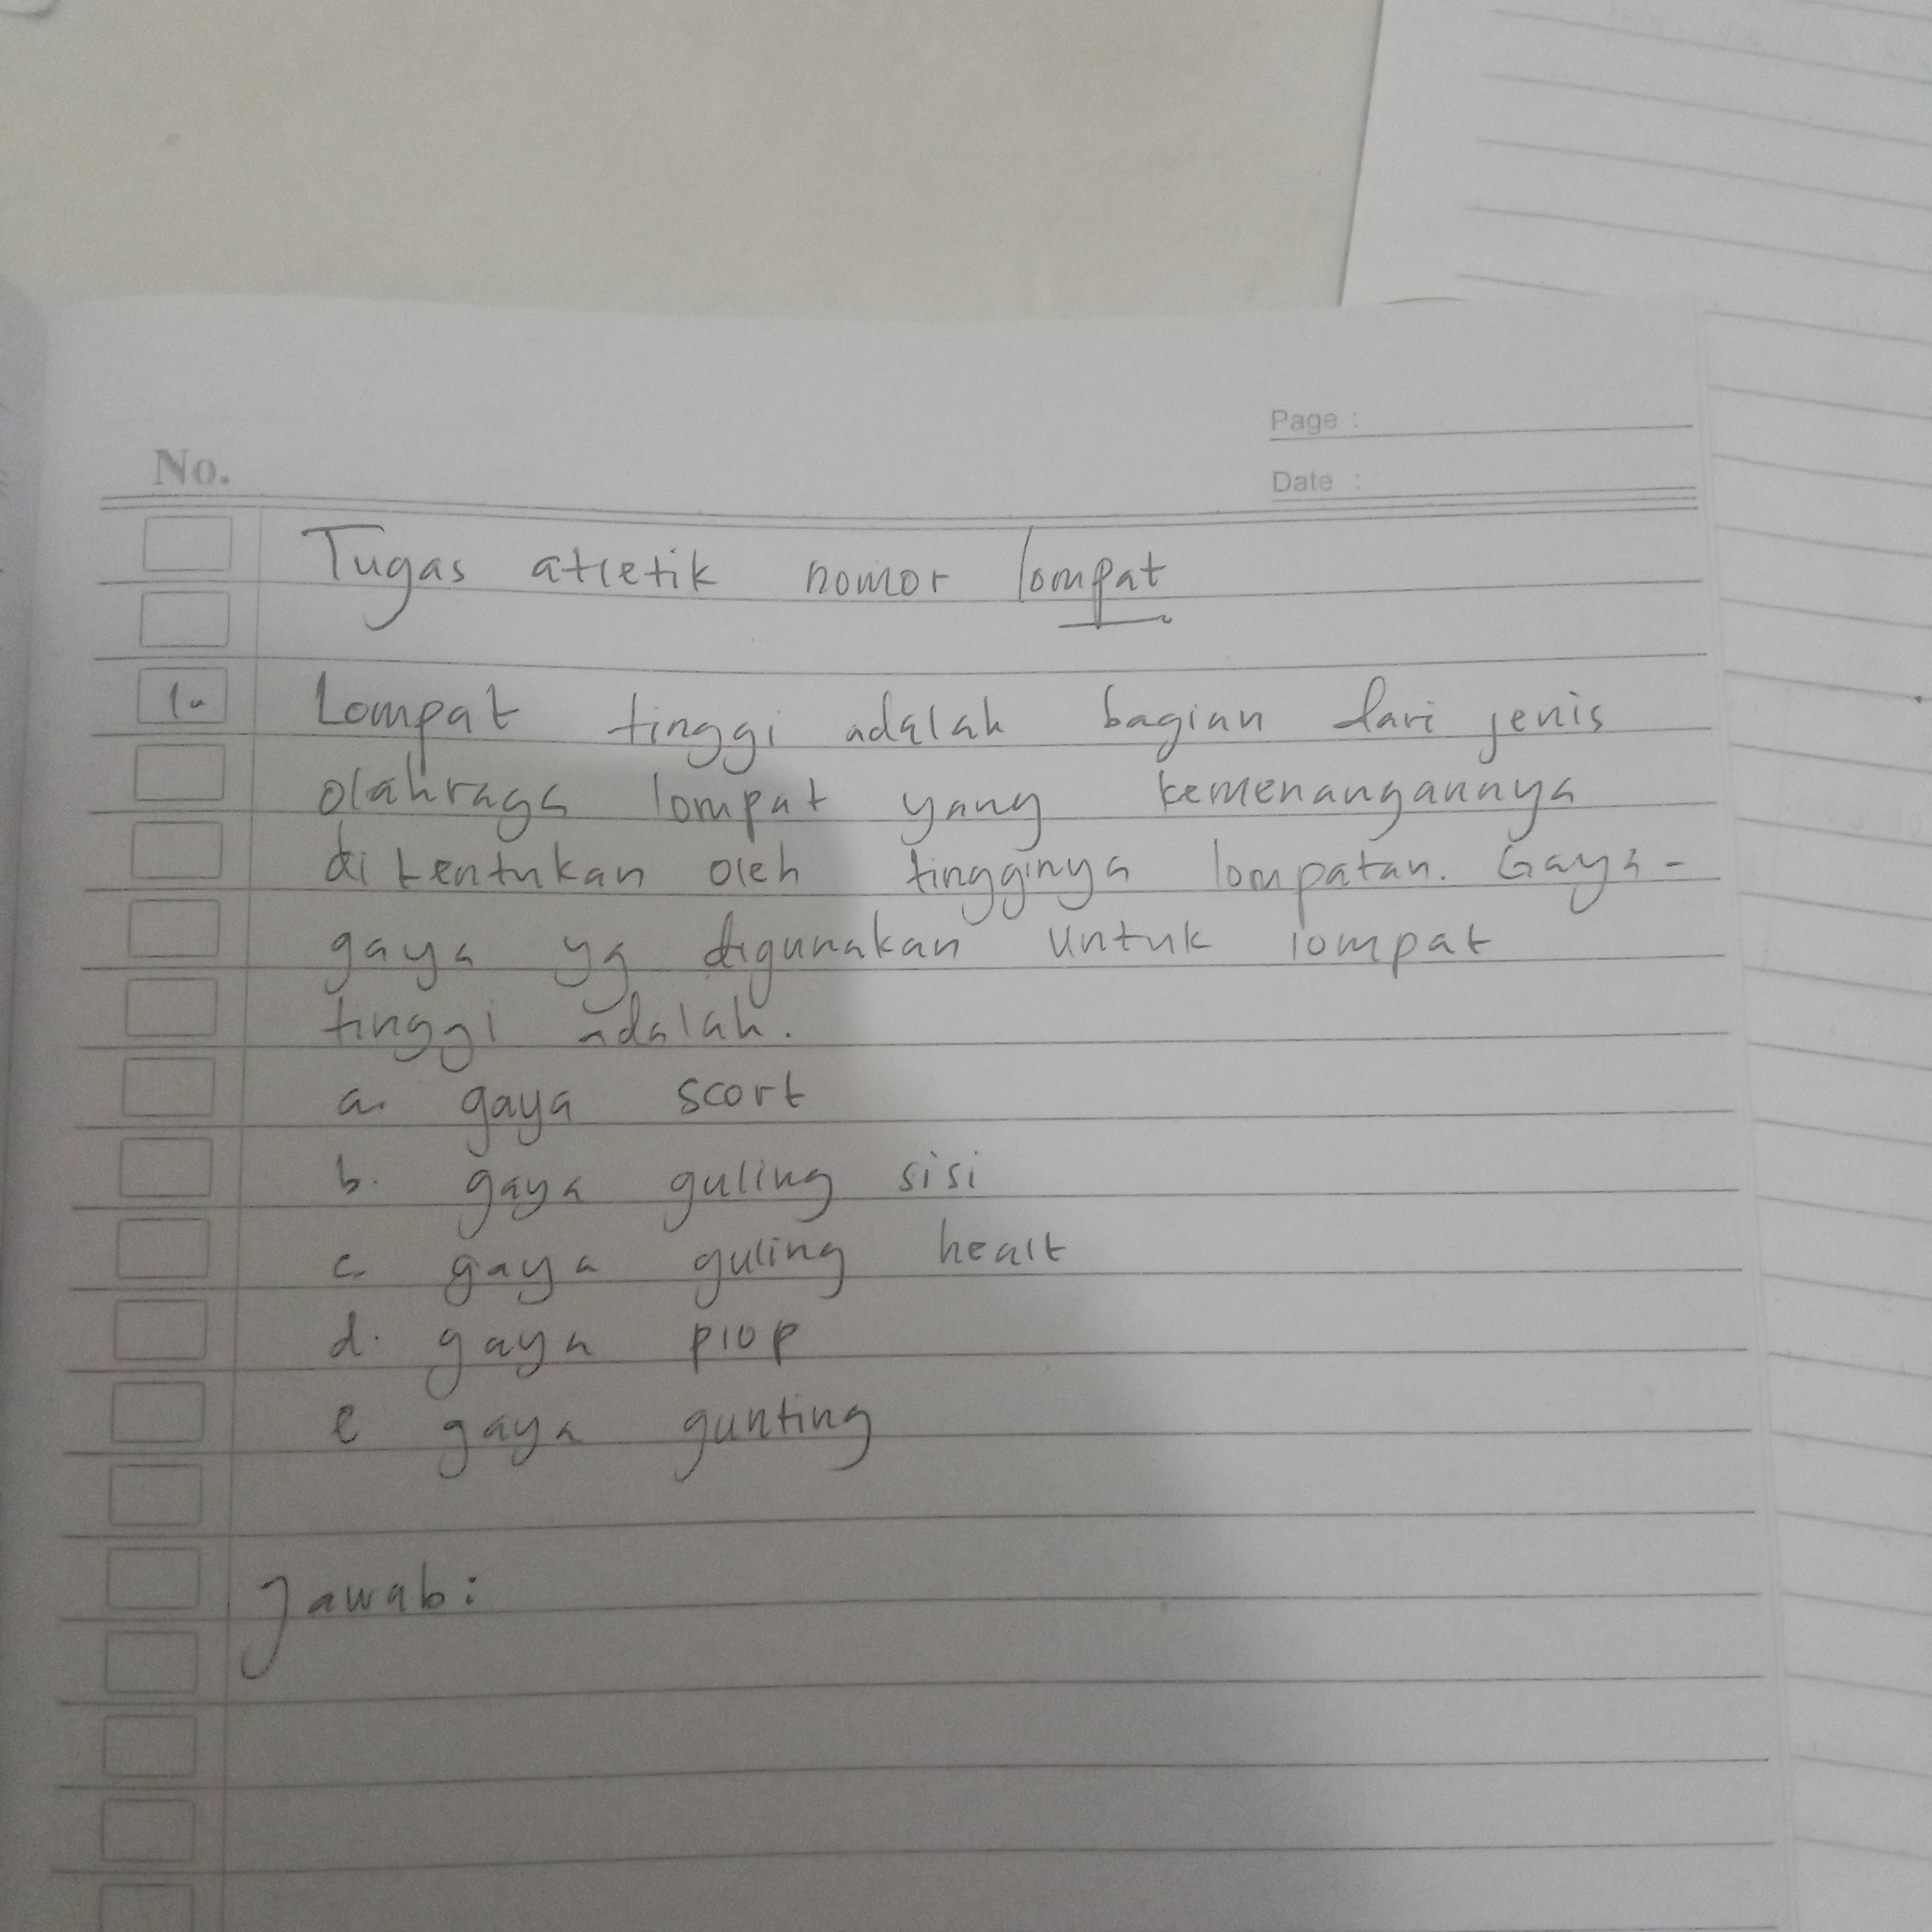 Page :
No.
Date :
Tugas atletik nomor lompat
1. Lompat tinggi adalah bagian dari jenis
olahraga lompat yang kemenangannya
ditentukan oleh tingginya lompatan. Gaya-
gaya yg digunakan untuk lompat
tinggi adalah.
a. gaya scort
b. gaya guling sisi
c. gaya guling healt
d. gaya plop
e gaya gunting
Jawab: